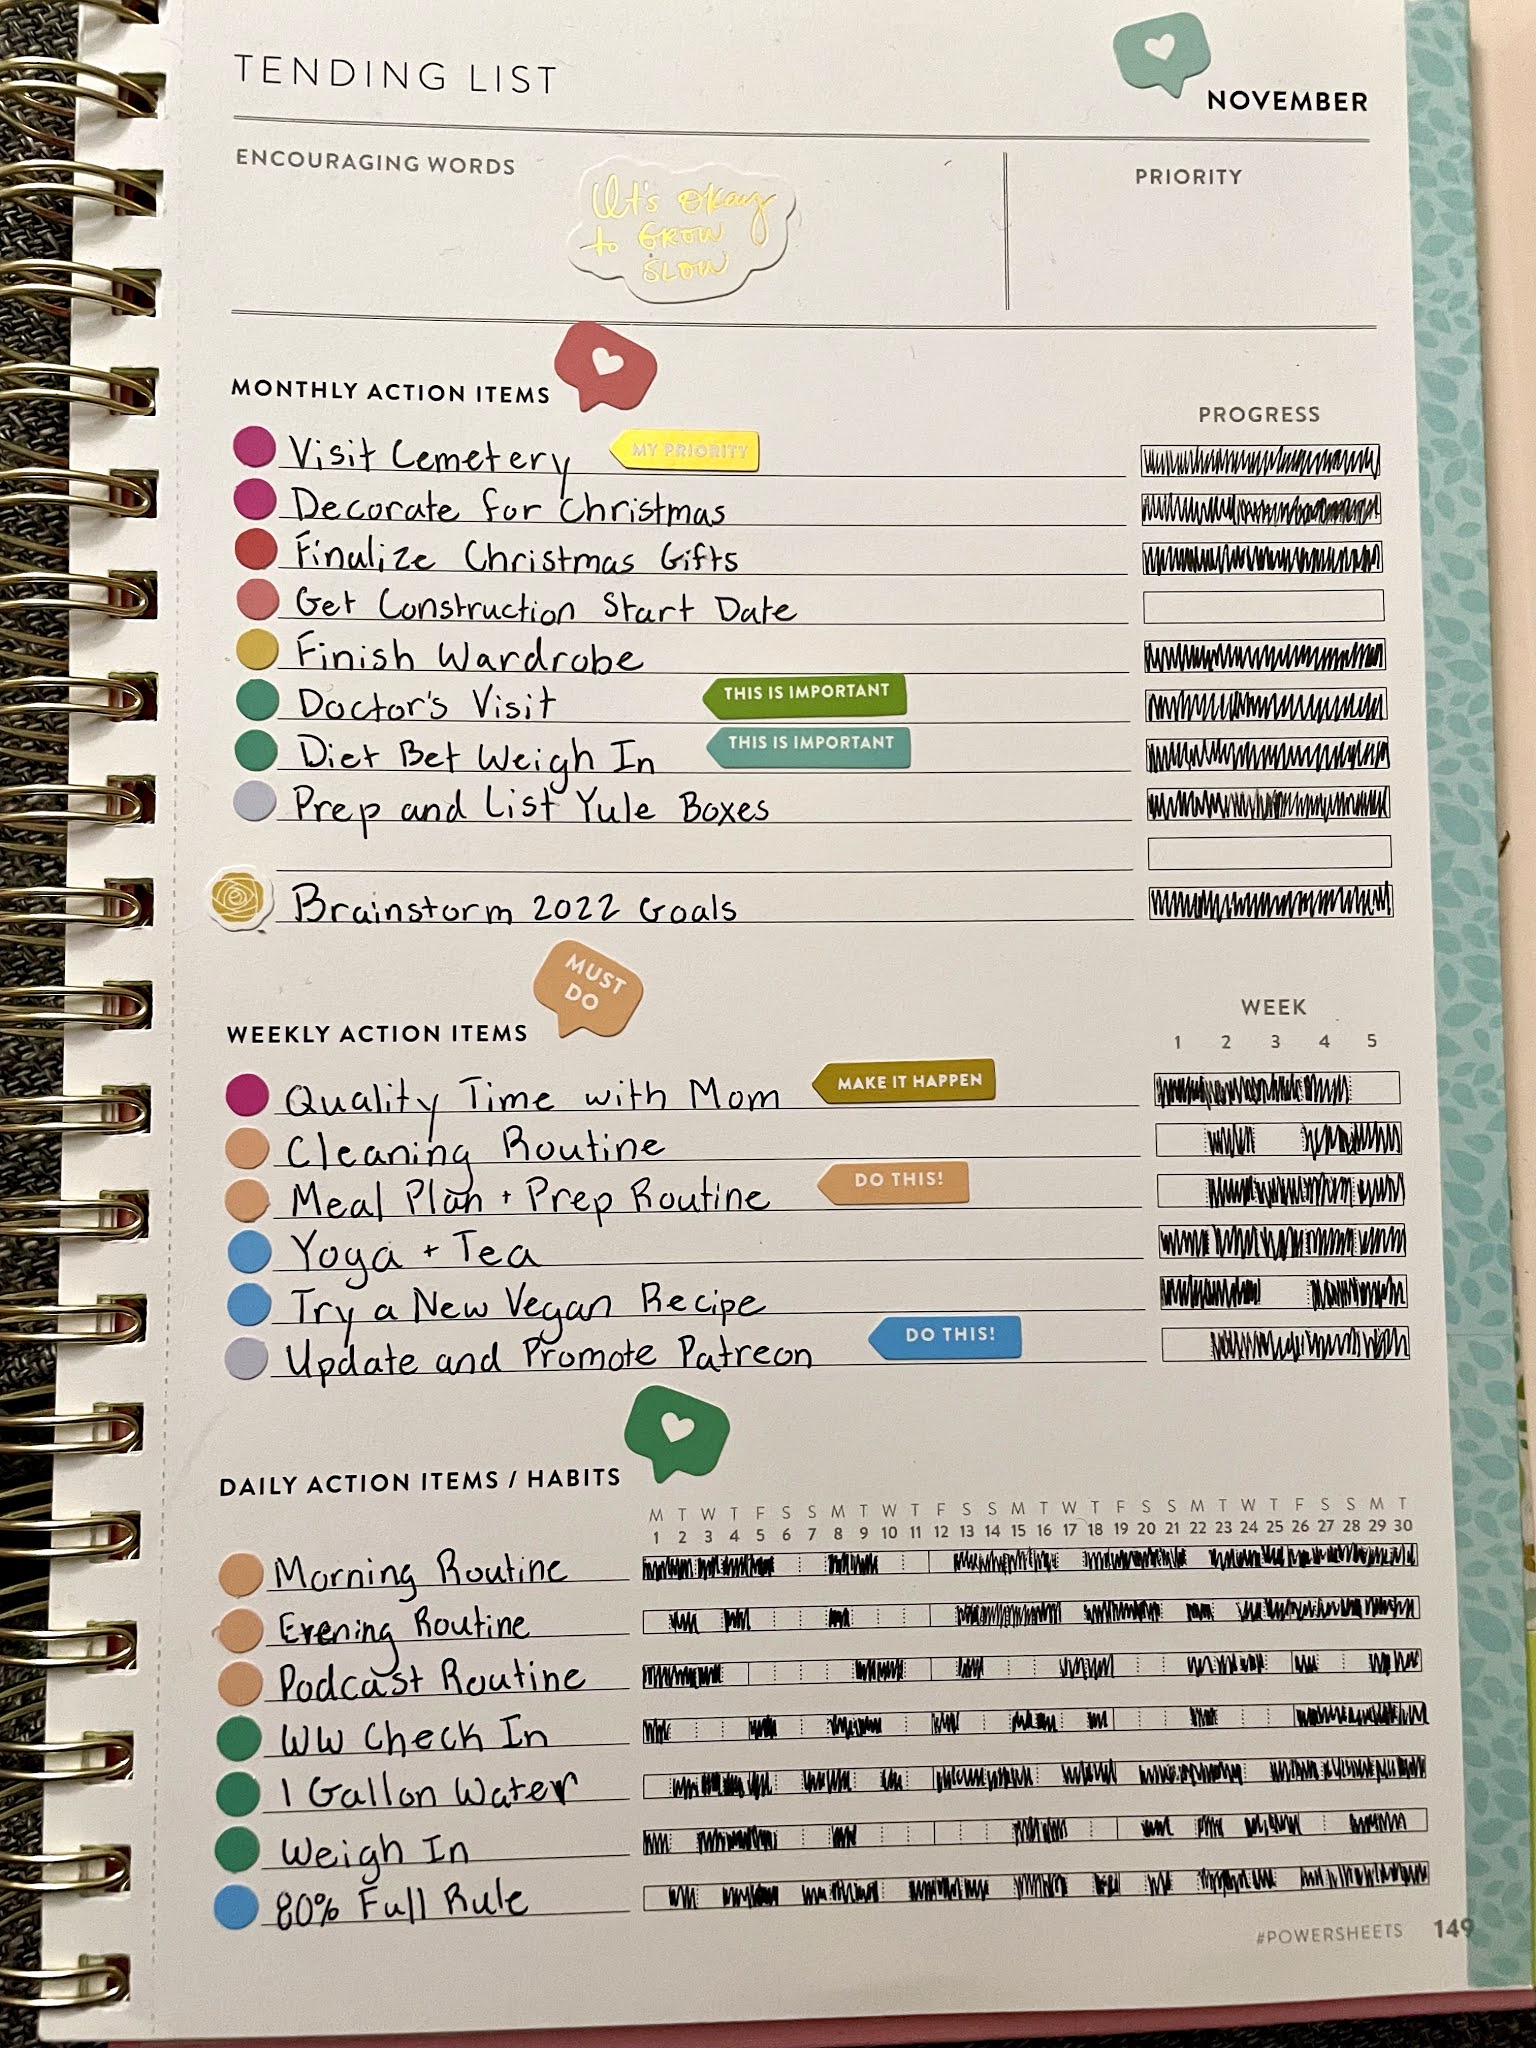 TENDING LIST
NOVEMBER
ENCOURAGING WORDS
It's okay
to GROW
SLOW
PRIORITY
MONTHLY ACTION ITEMS
PROGRESS
Visit Cemetery
MY PRIORITY
Decorate for Christmas
Finalize Christmas Gifts
Get Construction Start Date
Finish Wardrobe
Doctor's Visit
THIS IS IMPORTANT
Diet Bet Weigh In
THIS IS IMPORTANT
Prep and List Yule Boxes
Brainstorm 2022 Goals
MUST
DO
WEEKLY ACTION ITEMS
WEEK
1 2 3 4 5
Quality Time with Mom
MAKE IT HAPPEN
Cleaning Routine
Meal Plan + Prep Routine
DO THIS!
Yoga + Tea
Try a New Vegan Recipe
Update and Promote Patreon
DO THIS!
DAILY ACTION ITEMS / HABITS
M T W T F S S M T W T F S S M T W T F S S M T W T F S S M T
1 2 3 4 5 6 7 8 9 10 11 12 13 14 15 16 17 18 19 20 21 22 23 24 25 26 27 28 29 30
Morning Routine
Evening Routine
Podcast Routine
WW Check In
1 Gallon Water
Weigh In
80% Full Rule
#POWERSHEETS 149